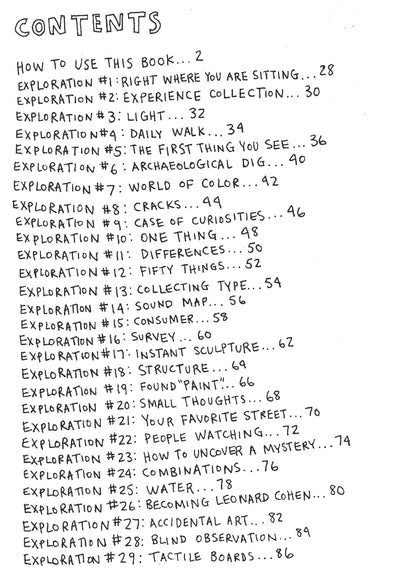 CONTENTS
HOW TO USE THIS BOOK... 2
EXPLORATION #1: RIGHT WHERE YOU ARE SITTING... 28
EXPLORATION #2: EXPERIENCE COLLECTION... 30
EXPLORATION #3: LIGHT... 32
EXPLORATION #4: DAILY WALK... 34
EXPLORATION #5: THE FIRST THING YOU SEE... 36
EXPLORATION #6: ARCHAEOLOGICAL DIG... 40
EXPLORATION #7: WORLD OF COLOR... 42
EXPLORATION #8: CRACKS... 44
EXPLORATION #9: CASE OF CURIOSITIES... 46
EXPLORATION #10: ONE THING... 48
EXPLORATION #11: DIFFERENCES... 50
EXPLORATION #12: FIFTY THINGS... 52
EXPLORATION #13: COLLECTING TYPE... 54
EXPLORATION #14: SOUND MAP... 56
EXPLORATION #15: CONSUMER... 58
EXPLORATION #16: SURVEY... 60
EXPLORATION #17: INSTANT SCULPTURE... 62
EXPLORATION #18: STRUCTURE... 64
EXPLORATION #19: FOUND "PAINT"... 66
EXPLORATION #20: SMALL THOUGHTS... 68
EXPLORATION #21: YOUR FAVORITE STREET... 70
EXPLORATION #22: PEOPLE WATCHING... 72
EXPLORATION #23: HOW TO UNCOVER A MYSTERY... 74
EXPLORATION #24: COMBINATIONS... 76
EXPLORATION #25: WATER... 78
EXPLORATION #26: BECOMING LEONARD COHEN... 80
EXPLORATION #27: ACCIDENTAL ART... 82
EXPLORATION #28: BLIND OBSERVATION... 84
EXPLORATION #29: TACTILE BOARDS... 86